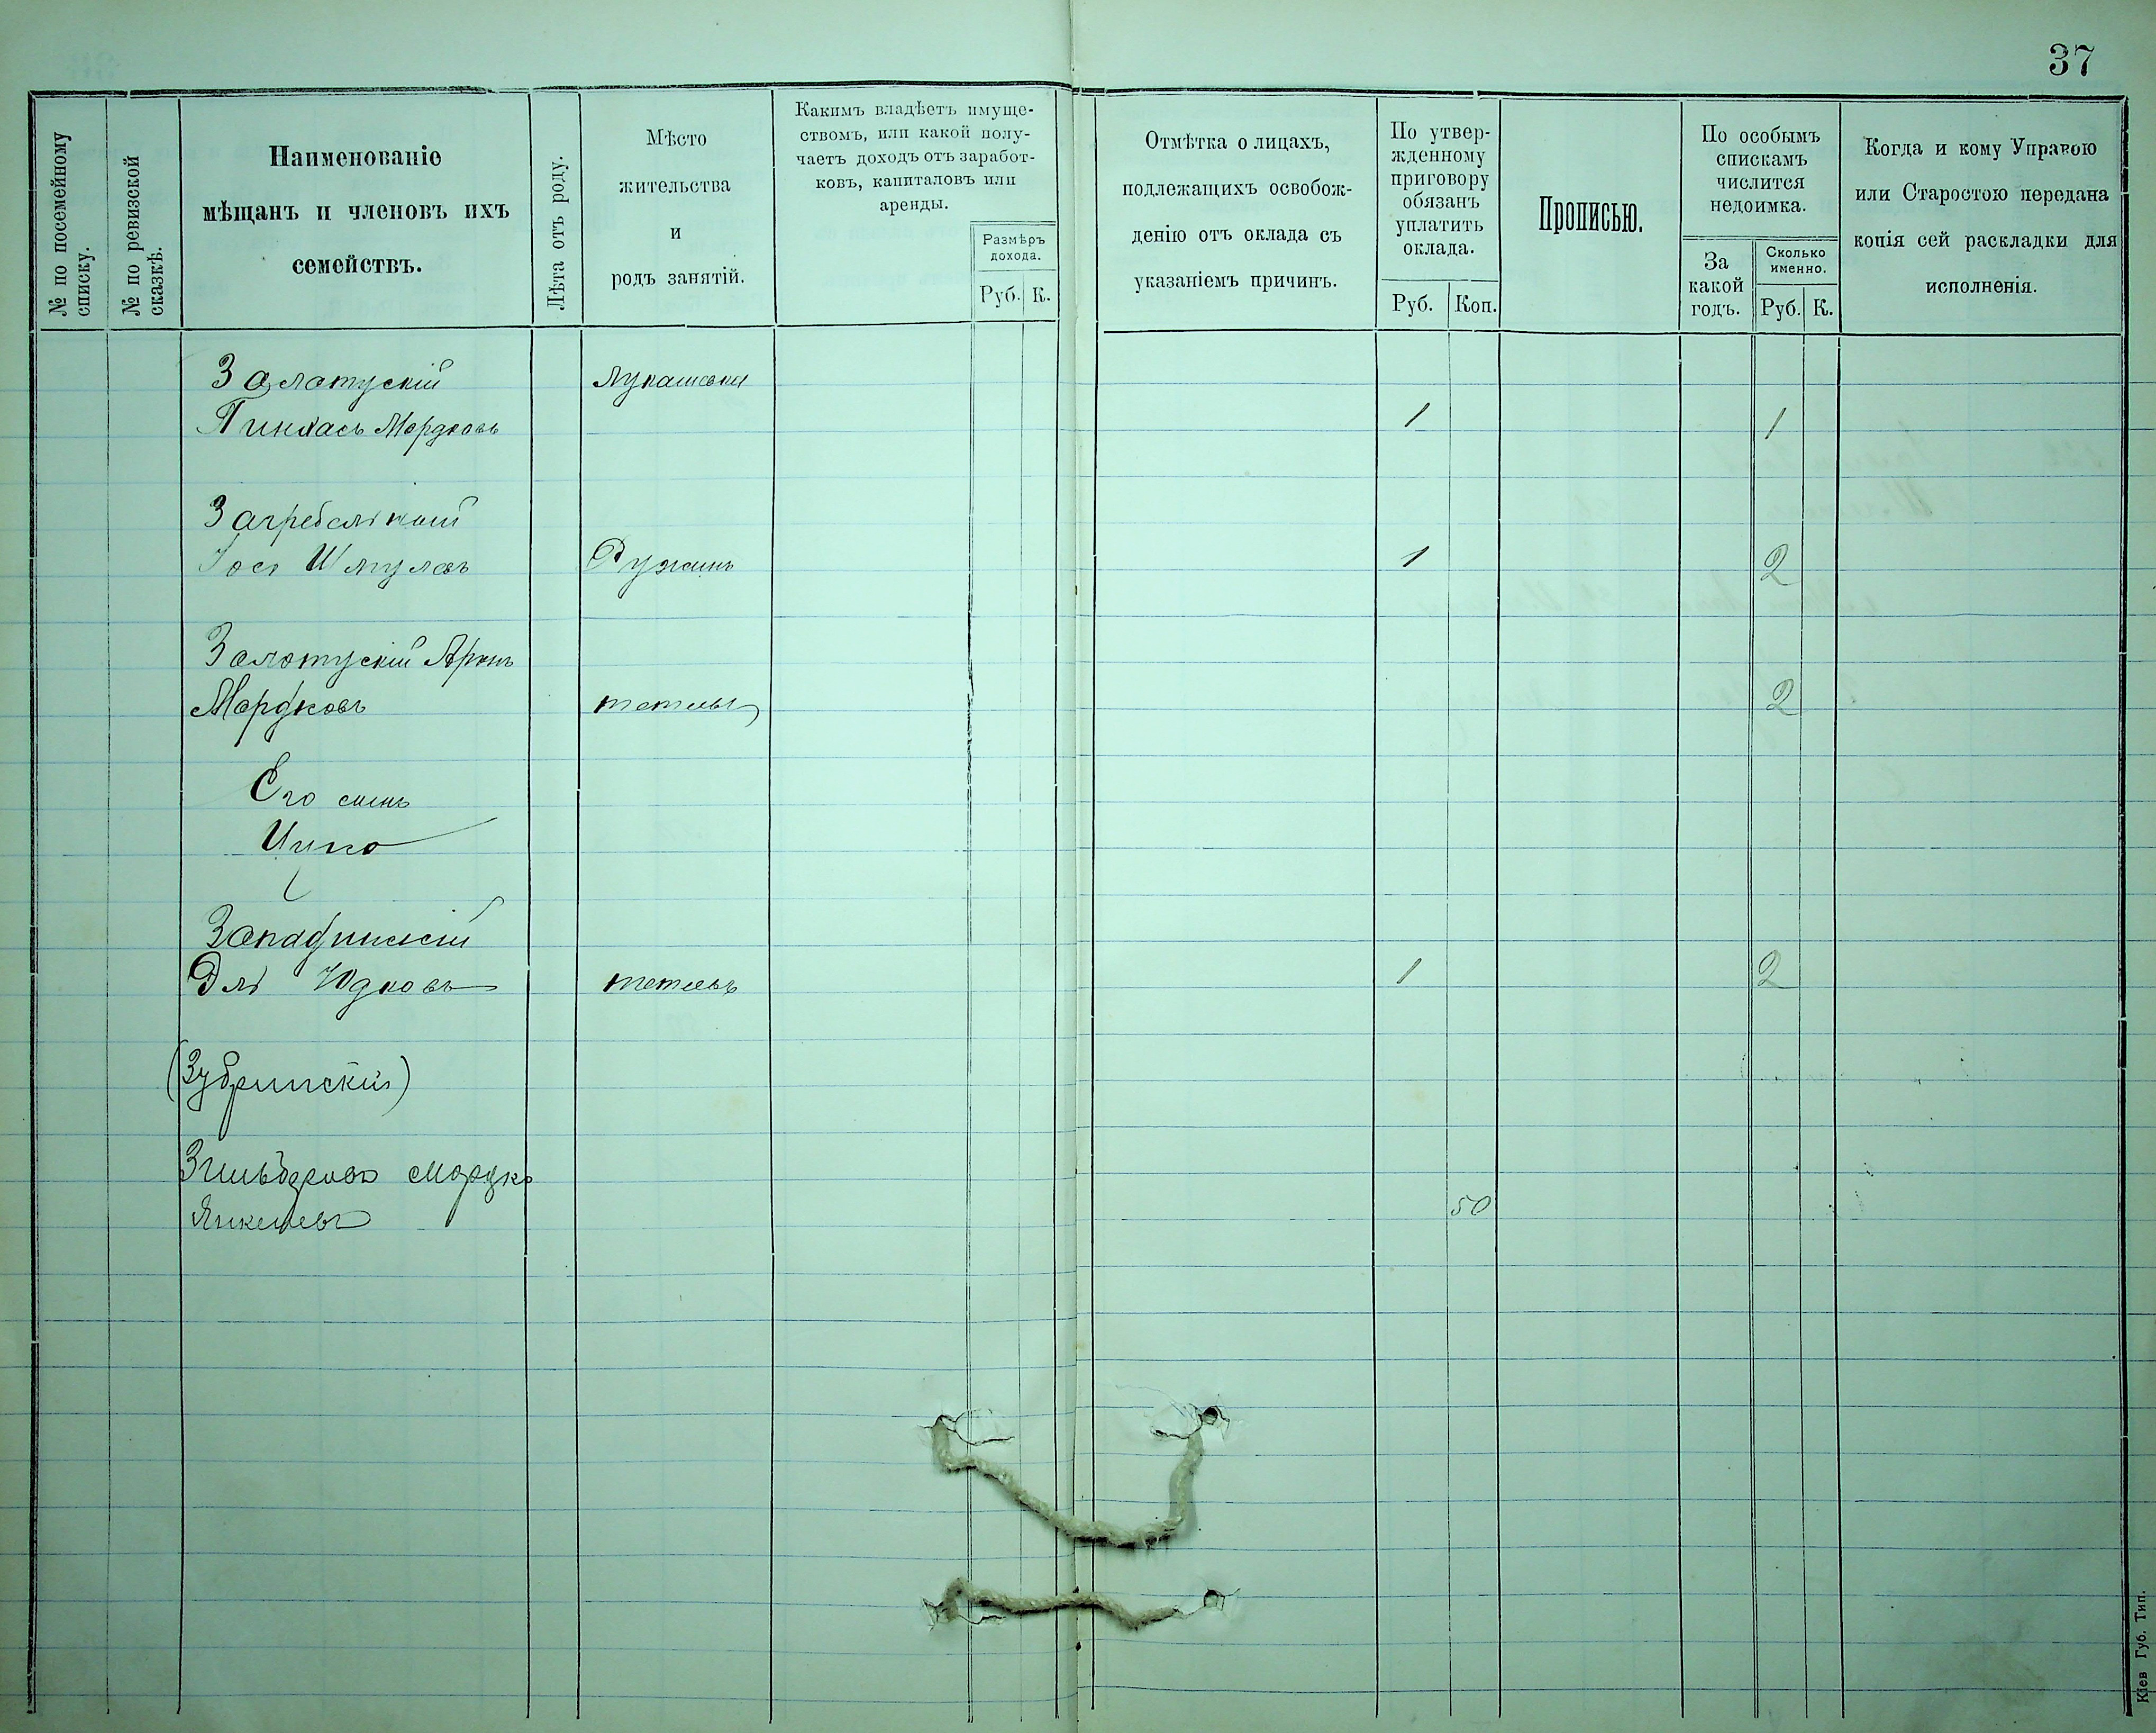 37
№ по посемейному
списку.
№ по ревизской
сказкѣ.
Наименованіе
мѣщанъ и членовъ ихъ
семействъ.
Лѣта отъ роду.
Мѣсто
жительства
и
родъ занятій.
Какимъ владѣетъ имуще-
ствомъ, или какой полу-
чаетъ доходъ отъ заработ-
ковъ, капиталовъ или
аренды.
Размѣръ
дохода.
Руб. К.
Отмѣтка о лицахъ,
подлежащихъ освобож-
денію отъ оклада съ
указаніемъ причинъ.
По утвер-
жденному
приговору
обязанъ
уплатить
оклада.
Руб. Коп.
Прописью.
По особымъ
спискамъ
числится
недоимка.
За
какой
годъ.
Сколько
именно.
Руб. К.
Когда и кому Управою
или Старостою передана
копія сей раскладки для
исполненія.
Залотускій Лукашовка
Пинхась Мордковъ 1 1
Загребельный
Іось Шмулевъ Ружинъ 1 2
Золотускій Аронъ
Мордковъ тетіевъ 2
Его сынъ
Западинскій
Эль Юдковъ тетіевъ 1 2
(Зубринскій)
Мордко
Янкелевъ 50
Кіев Губ. Тип.